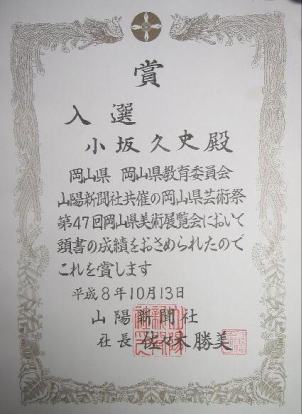 賞
入選
小坂久史殿
岡山県 岡山県教育委員会
山陽新聞社共催の岡山県芸術祭
第47回岡山県美術展覧会において
頭書の成績をおさめられたので
これを賞します
平成8年10月13日
山陽新聞社
社長 佐々木勝美